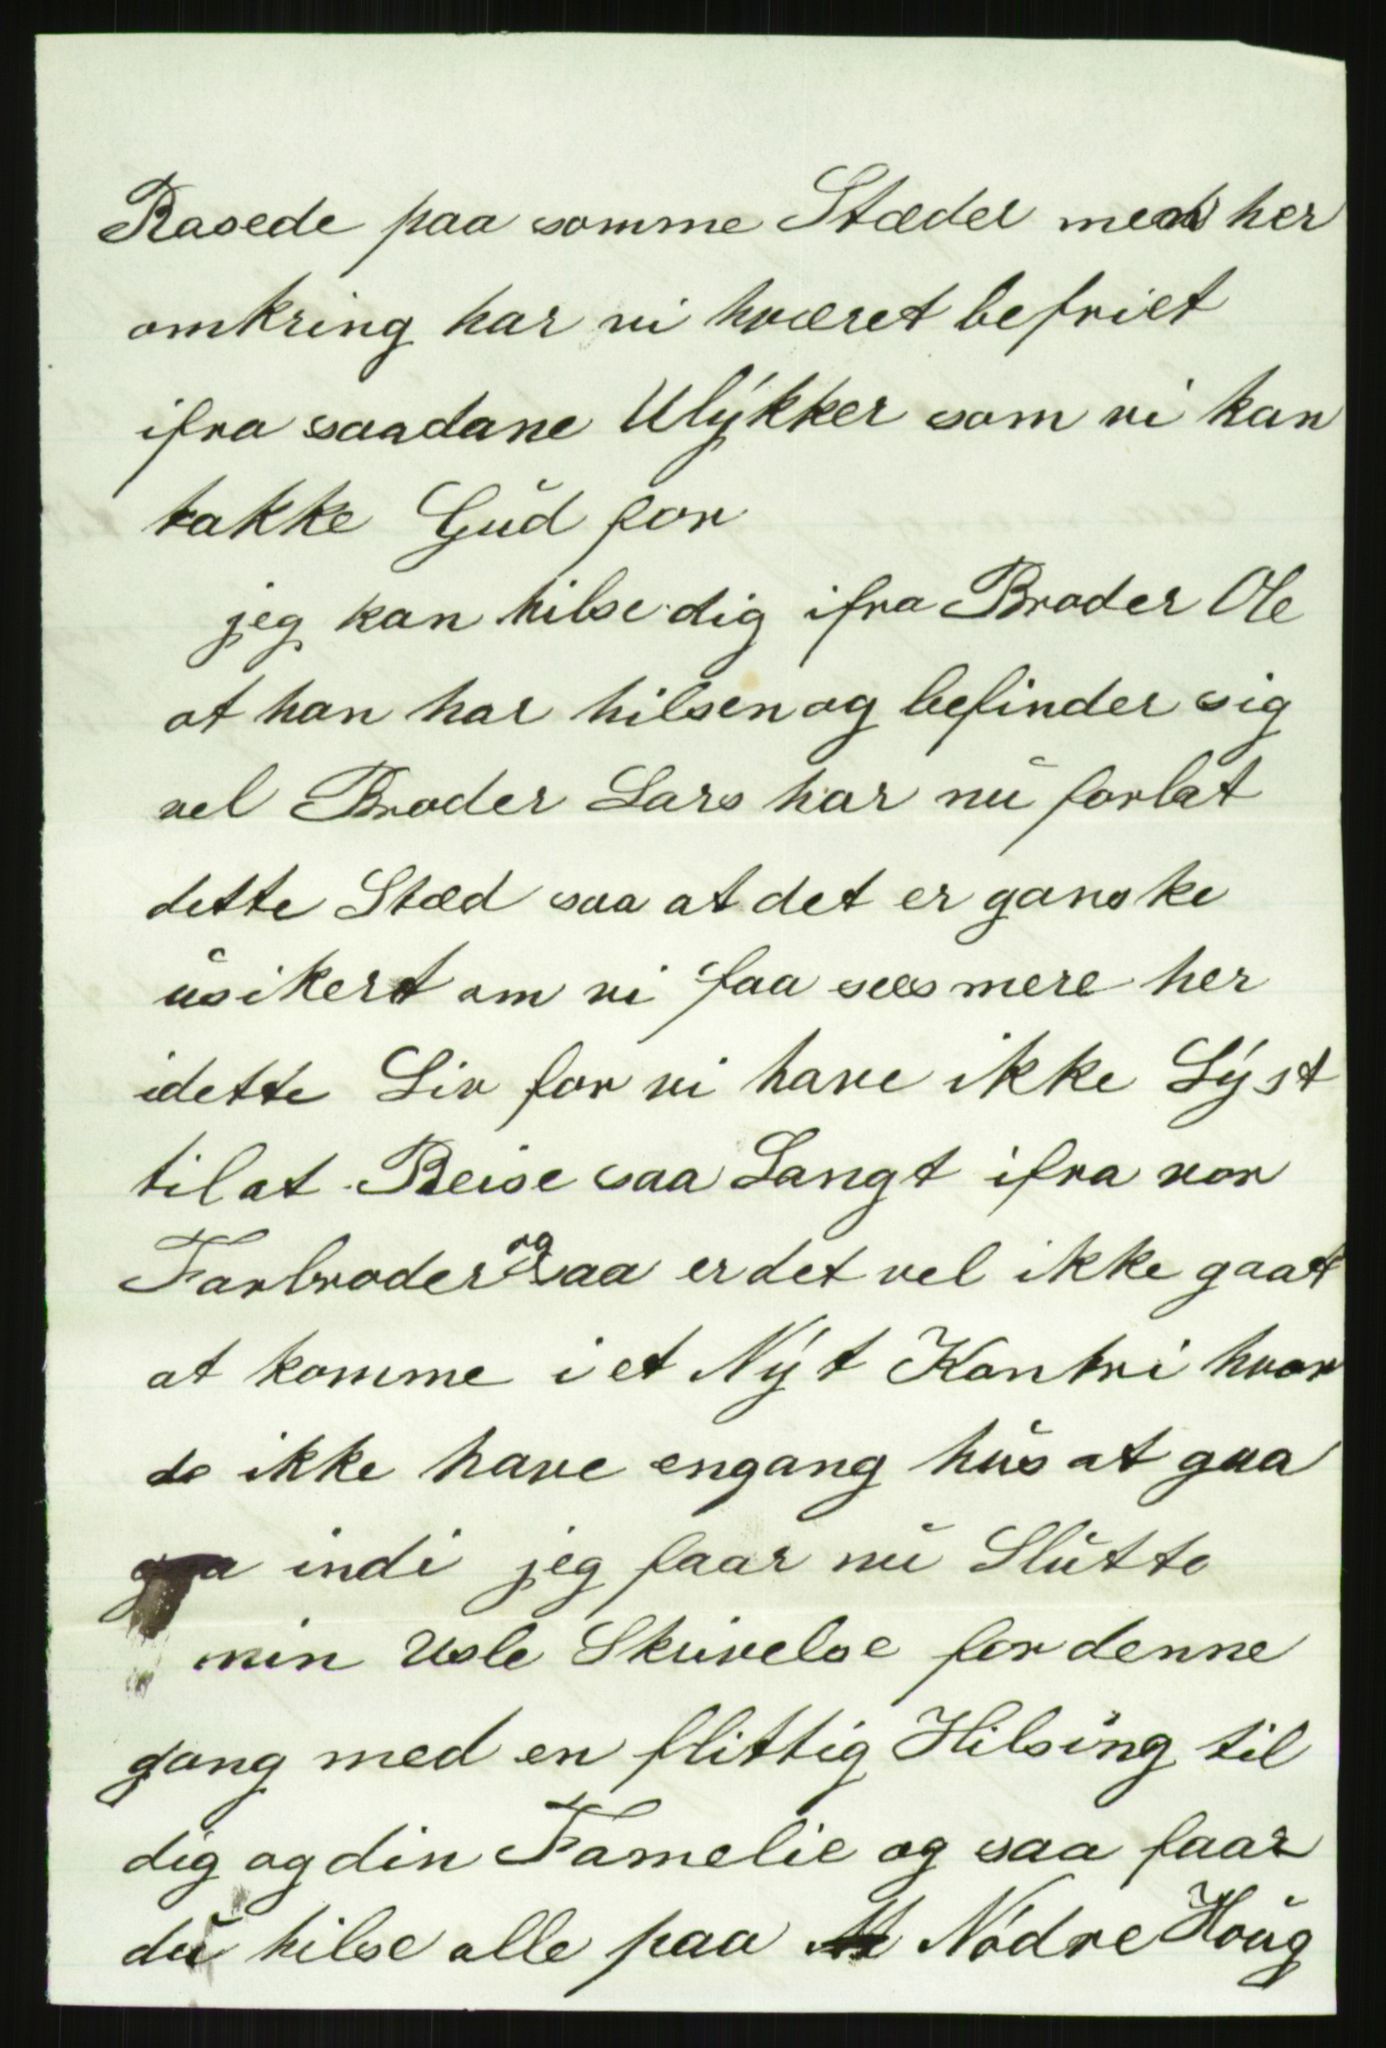 Rasede paa somme Stæder men her
omkring har vi hværet befriet
ifra saadane Ulýkker som vi kan
takke Gud for
jeg kan hilse dig ifra Broder Ole
at han har hilsen og befinder sig
vel Broder Lars har nu forlat
dette Stæd saa at det er ganske
usikert om vi faa sees mere her
idette Liv for vi have ikke Lýst
til at Reise saa Langt ifra vor
Farbroder og saa er det vel ikke gaat
at komme i et Nýt Kontri hvor
de ikke have engang hus at gaa
gaa indi jeg faar nu Slutte
min Usle Skrivelse for denne
gang med en flittig Hilsing til
dig og din Famelie og saa faar
du hilse alle paa Nödre Houg